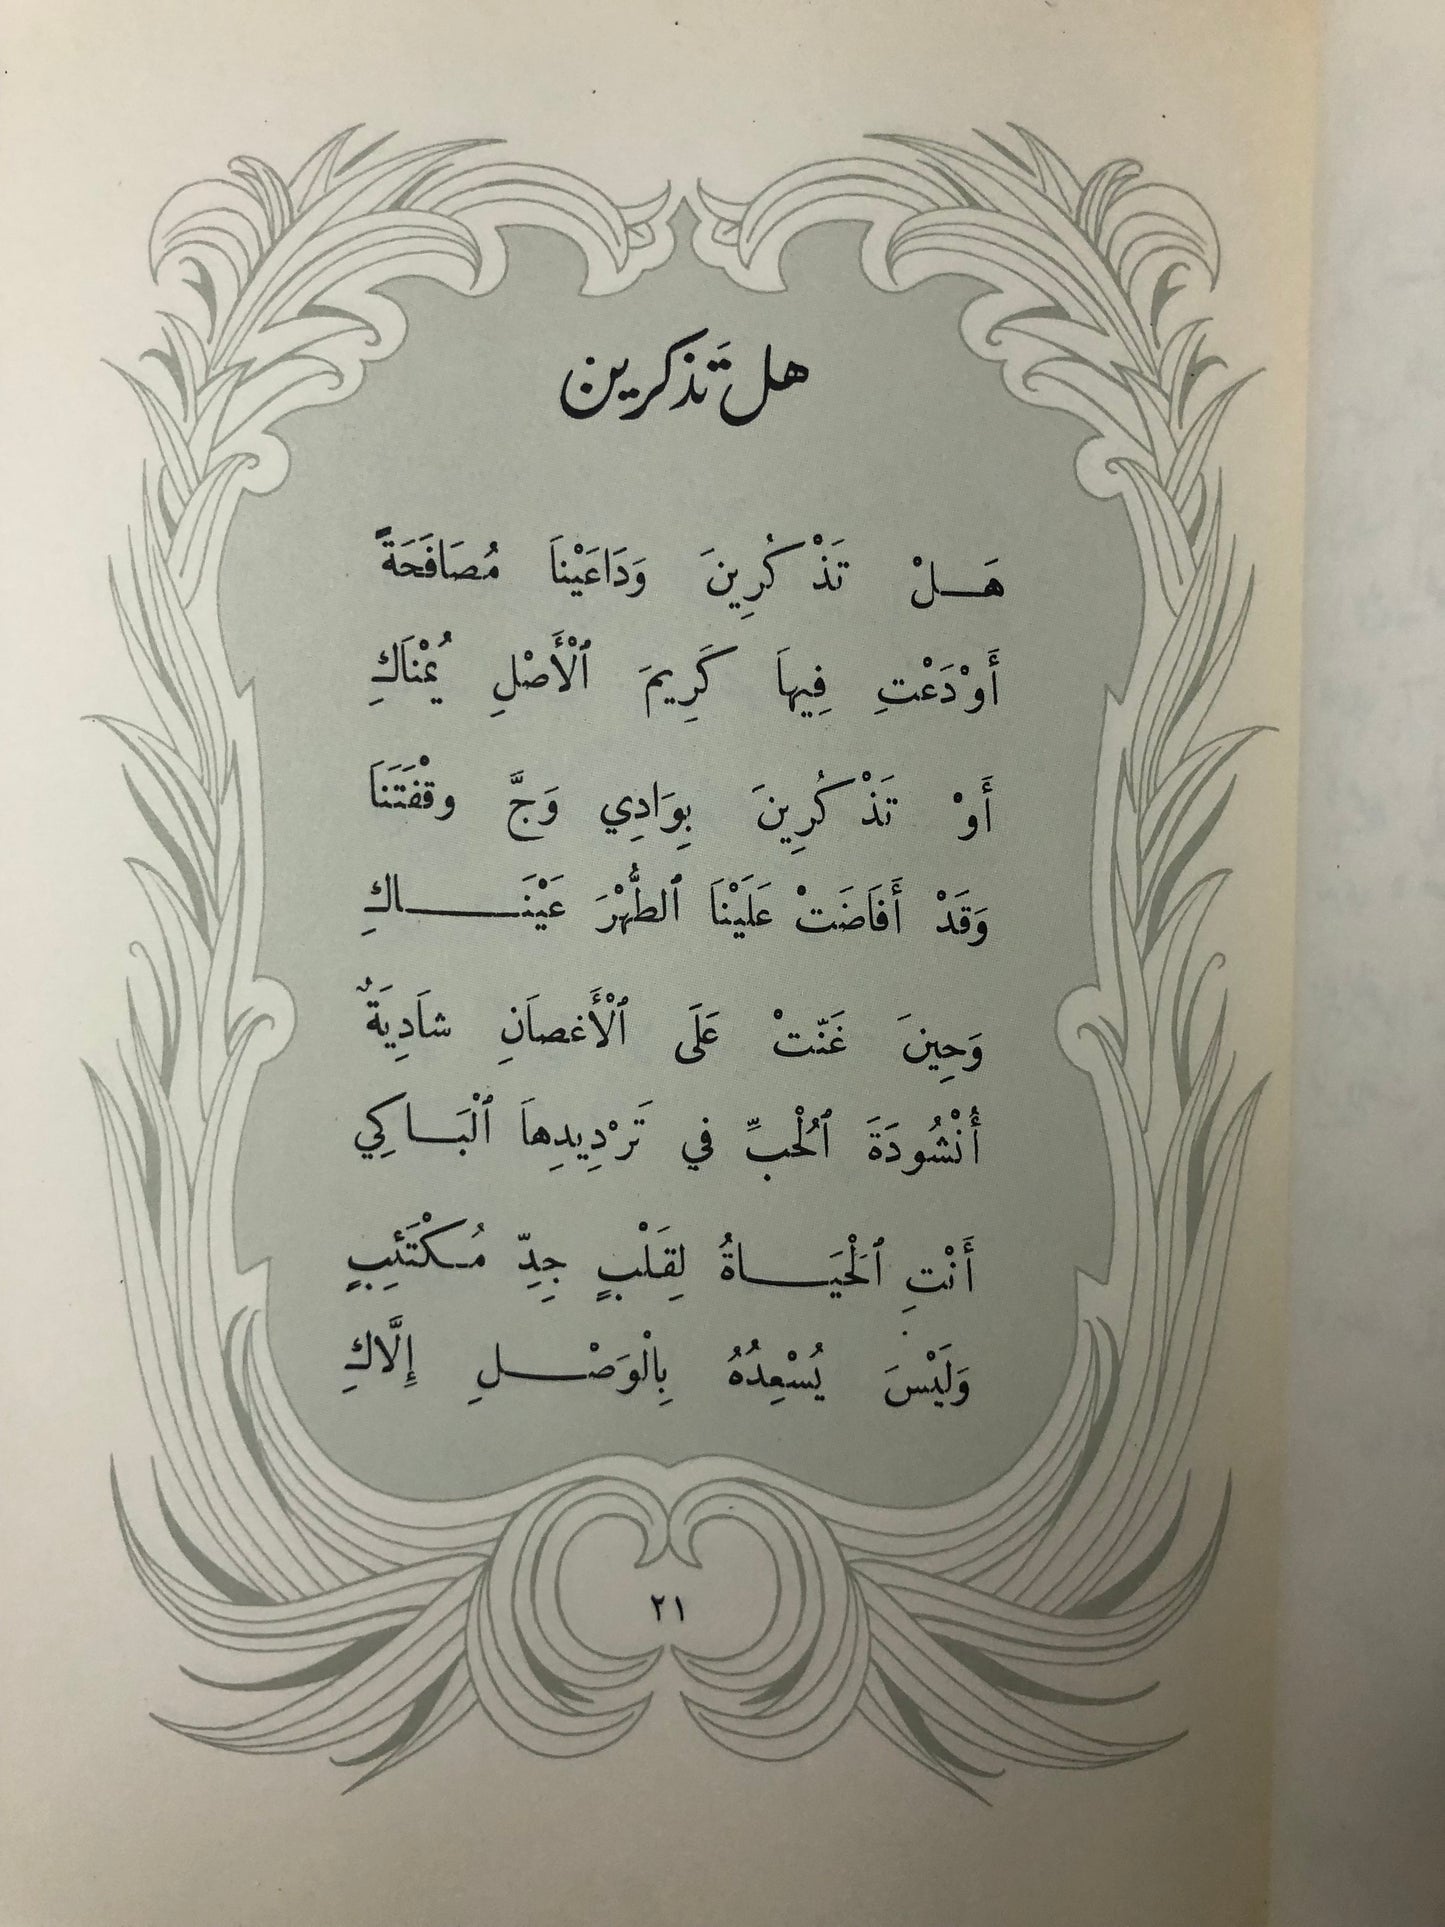 هل تذكرين
هَـــلْ تَذْكُرِينَ وَدَاعَيْنَا مُصَافَحَةً
أَوْدَعْتِ فِيهَا كَرِيمَ ٱلْأَصْلِ يُمْنَاكِ
أَوْ تَذْكُرِينَ بِوَادِي وَجَّ وقْفَتَنَا
وَقَدْ أَفَاضَتْ عَلَيْنَا ٱلطُّهْرَ عَيْنَـــــاكِ
وَحِينَ غَنّتْ عَلَى ٱلْأَغصَانِ شَادِيَةٌ
أُنْشُودَةَ ٱلْحُبِّ في تَرْدِيدِهَا ٱلْبَـــاكِي
أَنْتِ ٱلْحَيَـــــاةُ لِقَلْبٍ جِدِّ مُـكْتَئِبٍ
وَلَيْسَ يُسْعِدُهُ بِالْوَصْـــــلِ إِلَّاكِ
٢١